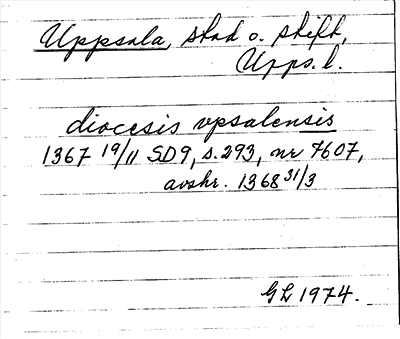 Uppsala, stad o. stift,
Upps. l.
diocesis vpsalensis
1367 19/11 SD9, s. 293, nr 7607,
avskr. 1368 31/3
GL 1974.